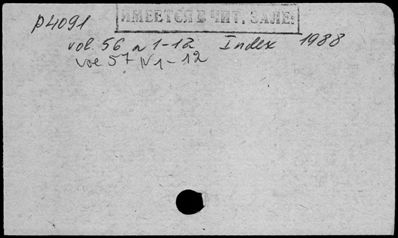 P4091
ИМЕЕТСЯ В ЧИТ. ЗАЛЕ.
vol. 56 N 1-12 Index 1988
vol 57 N 1-12